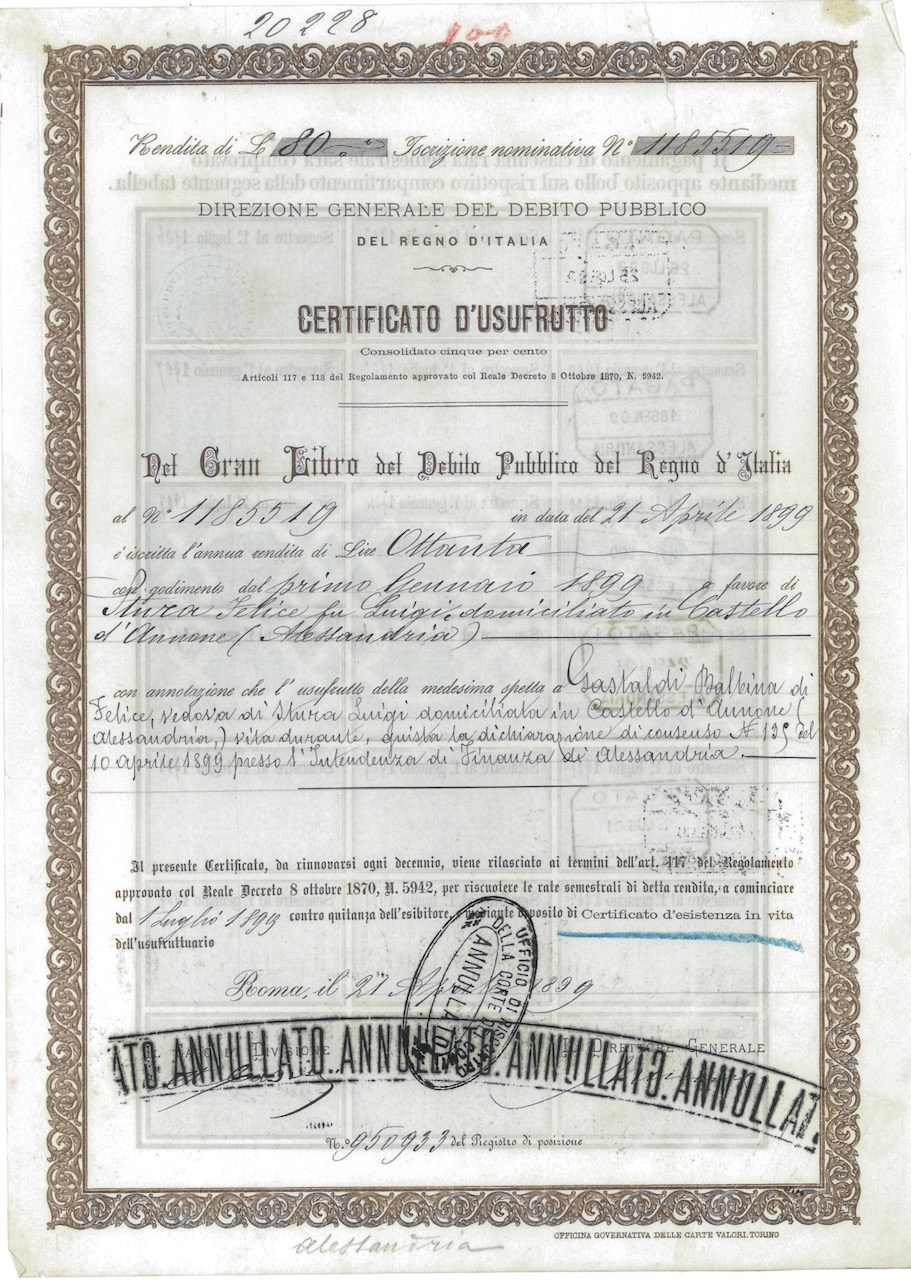 20228
100
Rendita di L 80 Iscrizione nominativa N° 1185519
DIREZIONE GENERALE DEL DEBITO PUBBLICO
DEL REGNO D'ITALIA
CERTIFICATO D'USUFRUTTO
Consolidato cinque per cento
Articoli 117 e 118 del Regolamento approvato col Reale Decreto 8 Ottobre 1870, N. 5942.
Del Gran Libro del Debito Pubblico del Regno d'Italia
al N° 1185519 in data del 21 Aprile 1899
è iscritta l'annua rendita di Lire Ottanta
con godimento dal primo Gennaio 1899 a favore di
Stura Felice fu Luigi, domiciliato in Castello
d'Annone (Alessandria)
con annotazione che l'usufrutto della medesima spetta a Gastaldi Balbina di
Felice, vedova di Stura Luigi domiciliata in Castello d'Annone (
Alessandria,) vita durante, giusta la dichiarazione di consenso N° 135 del
10 Aprile 1899 presso l'Intendenza di Finanza di Alessandria.
Il presente Certificato, da rinnovarsi ogni decennio, viene rilasciato ai termini dell'art. 117 del Regolamento
approvato col Reale Decreto 8 ottobre 1870, N. 5942, per riscuotere le rate semestrali di detta rendita, a cominciare
dal 1 Luglio 1899 contro quitanza dell'esibitore, e mediante deposito di Certificato d'esistenza in vita
dell'usufruttuario
Roma, il 21 Aprile 1899
UFFICIO DI RISCONTRO
DELLA CORTE DEI CONTI
ANNULLATO
DIVISIONE
IL DIRETTORE GENERALE
ATO.ANNULLATO.ANNULLATO.ANNULLATO.ANNULLAT
N.° 950933 del Registro di posizione
OFFICINA GOVERNATIVA DELLE CARTE VALORI. TORINO
Alessandria